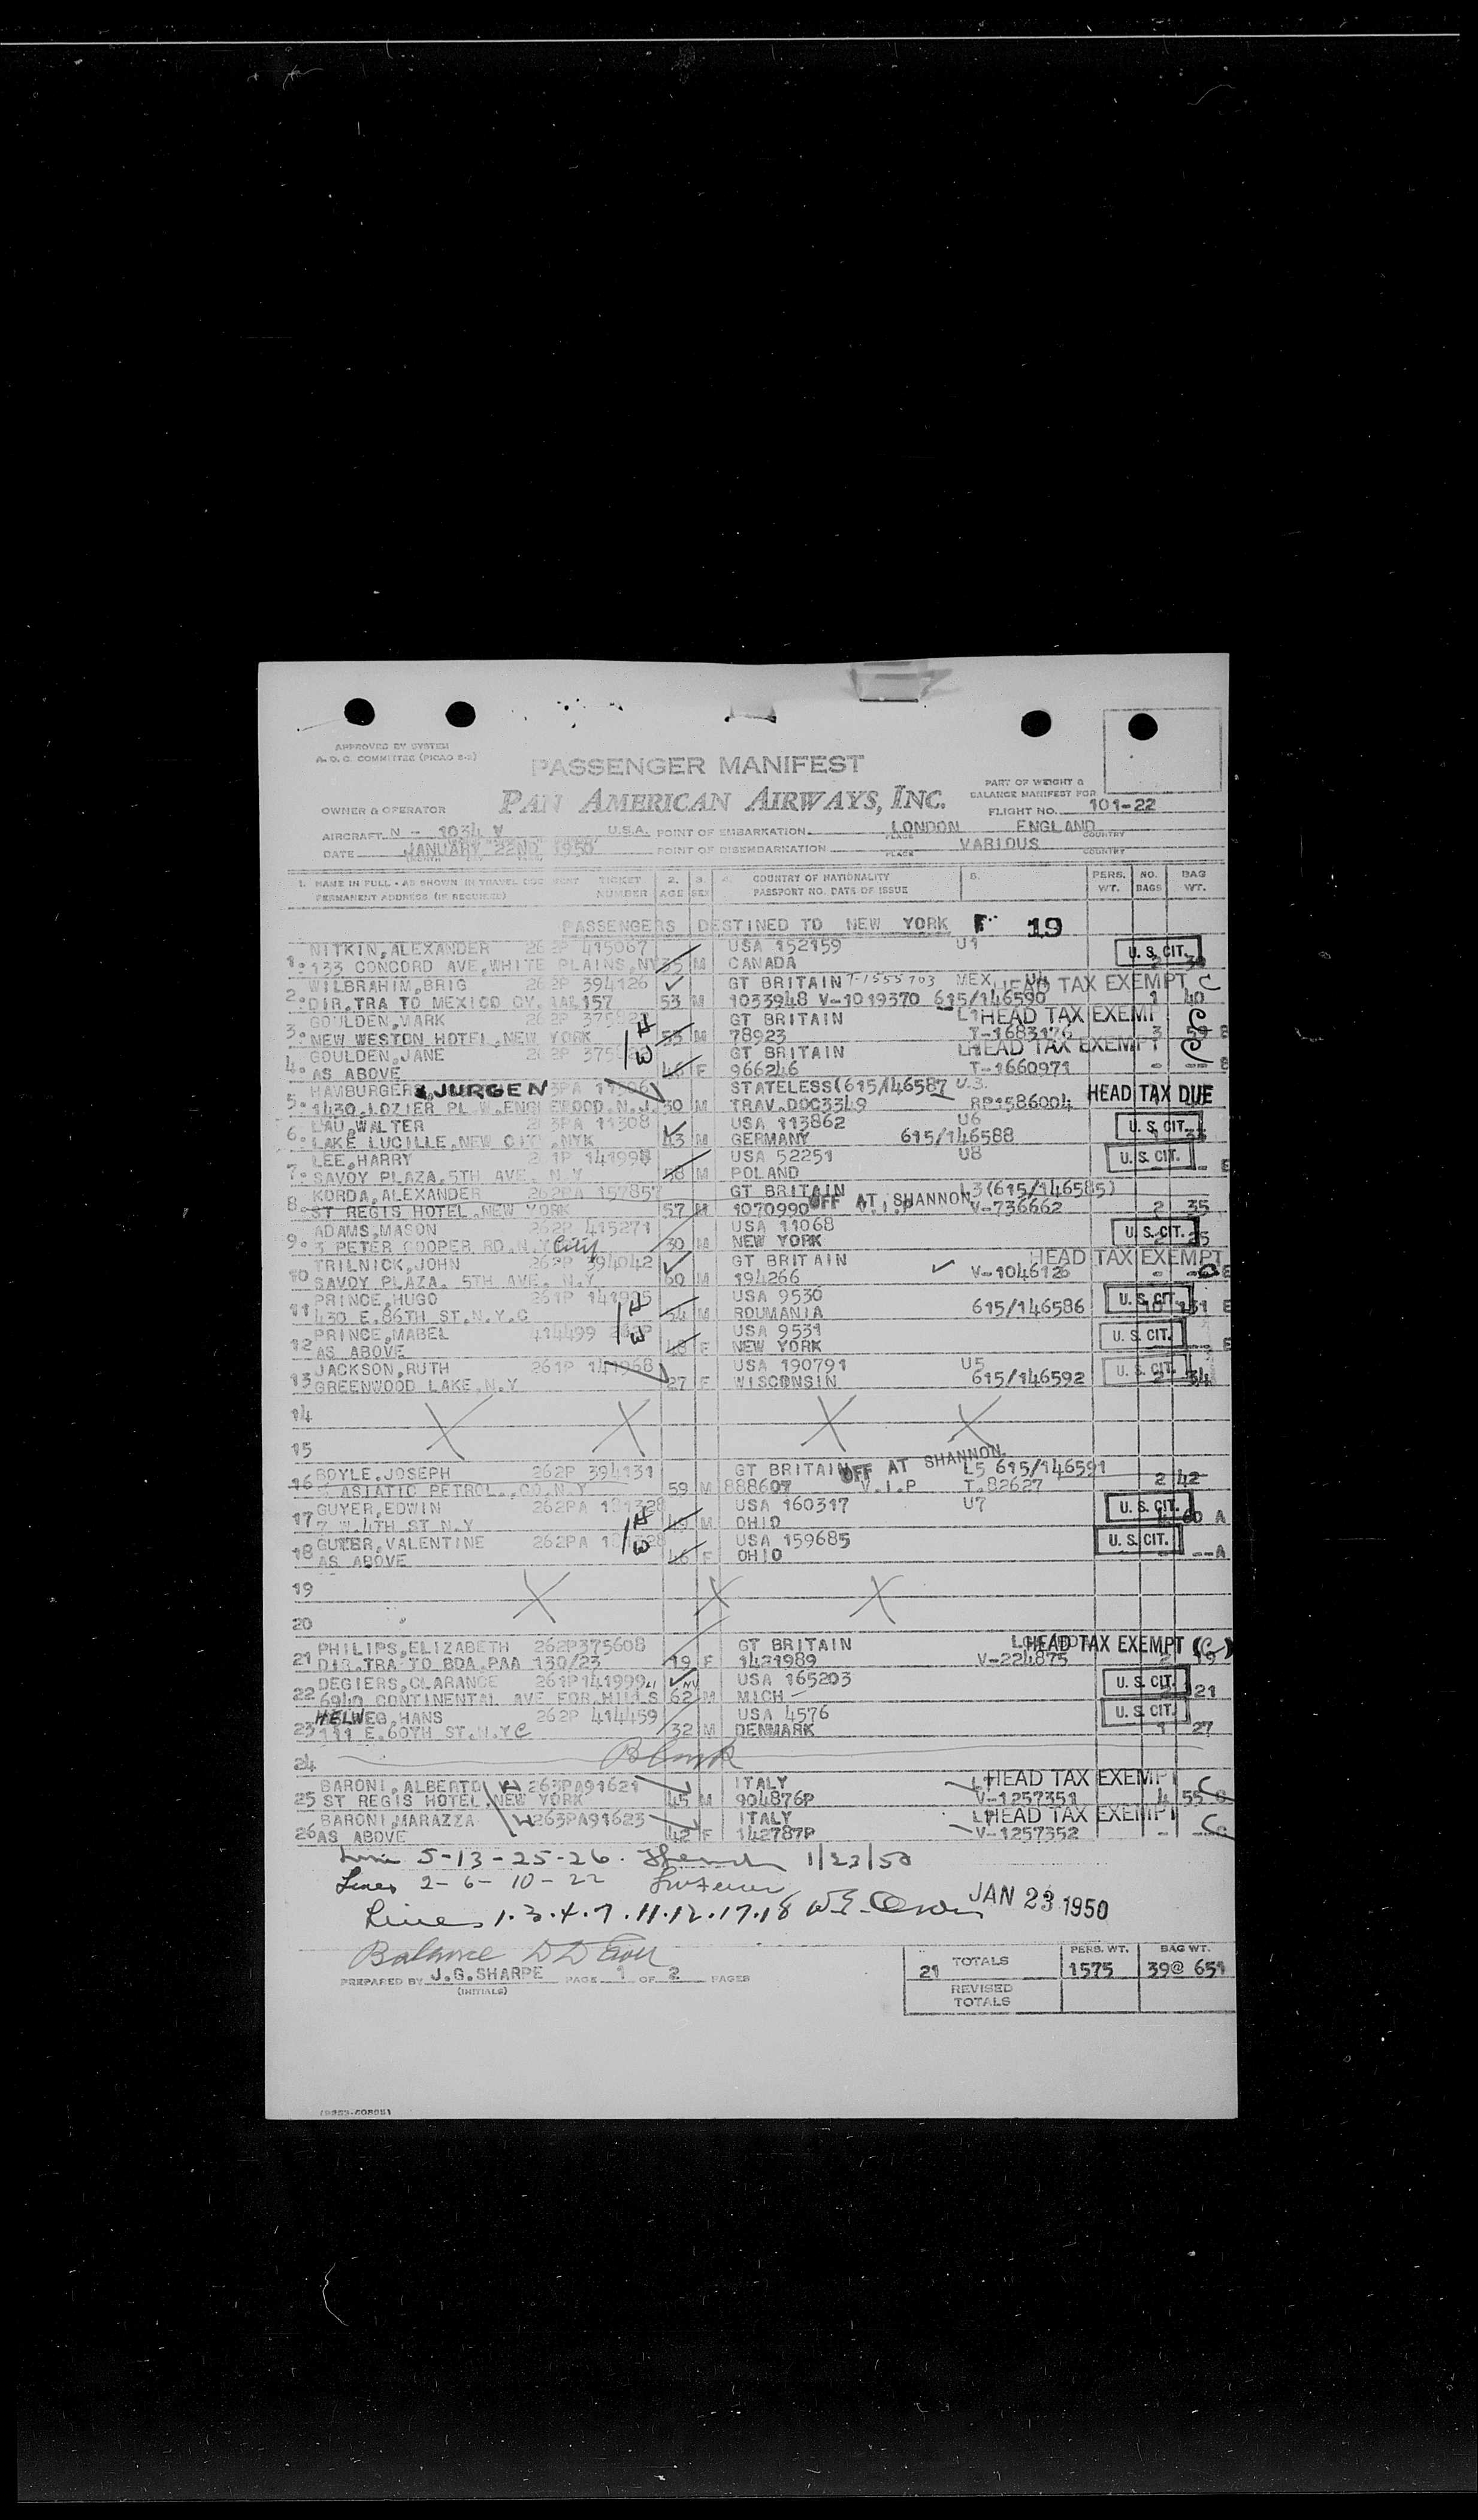 APPROVED BY SYSTEM
A.D.C. COMMITTEE (PICAO 8-2)
PASSENGER MANIFEST
PART OF WEIGHT &
BALANCE MANIFEST FOR
OWNER & OPERATOR PAN AMERICAN AIRWAYS, INC. FLIGHT NO. 101-22
AIRCRAFT N - 1034 V U.S.A. POINT OF EMBARKATION LONDON ENGLAND
PLACE COUNTRY
DATE JANUARY 22ND 1950 POINT OF DISEMBARKATION VARIOUS
PLACE COUNTRY
1. NAME IN FULL - AS SHOWN IN TRAVEL DOCUMENT TICKET 2. 3. 4. COUNTRY OF NATIONALITY 5. PERS. NO. BAG
PERMANENT ADDRESS (IF REQUIRED) NUMBER AGE SEX PASSPORT NO. DATE OF ISSUE WT. BAGS WT.
PASSENGERS DESTINED TO NEW YORK F 19
NITKIN,ALEXANDER 262P 415067 USA 152159 U1 U.S.CIT.
1. 133 CONCORD AVE,WHITE PLAINS,NY 35 M CANADA
WILBRAHIM,BRIG 262P 394126 GT BRITAIN T-1555703 MEX U4 HEAD TAX EXEMPT C
2. DIR.TRA TO MEXICO CY. 157 53 M 1033948 V-1019370 615/146590 1 40
GOULDEN,MARK 262P GT BRITAIN L1 HEAD TAX EXEMPT
3. NEW WESTON HOTEL,NEW YORK W/H 53 M 78923 T-1683176 3 59 8
GOULDEN,JANE 262P GT BRITAIN HEAD TAX EXEMPT
4. AS ABOVE 46 F 966246 T-1660971 - -- 8
HAMBURGER, JURGEN STATELESS(615/146587 U.3. HEAD TAX DUE
5. 1430.LOZIER PL W.ENGLEWOOD.N.J. 30 M TRAV.DOC3349 RP1586004
LAU,WALTER 263PA 11308 USA 113862 U6 U.S.CIT.
6. LAKE LUCILLE,NEW CITY,NYK 43 M GERMANY 615/146588
LEE,HARRY 261P 141998 USA 52251 U8 U.S.CIT.
7. SAVOY PLAZA,5TH AVE. N.Y 58 M POLAND E
KORDA,ALEXANDER 262PA 15785 GT BRITAIN L3(615/146585)
8. ST REGIS HOTEL.NEW YORK 57 M 1070990 OFF AT SHANNON V.I.P V-736662 2 35
ADAMS,MASON 262P 415271 USA 11068 U.S.CIT.
9. 3 PETER COOPER RD.N.Y City 30 M NEW YORK
TRILNICK,JOHN 262P 394042 GT BRITAIN HEAD TAX EXEMPT
10 SAVOY PLAZA. 5TH AVE. N.Y 60 M 194266 V-1046126 - --
PRINCE,HUGO 261P 141995 USA 9530 U.S.CIT.
11 430 E.86TH ST.N.Y.C W/H 54 M ROUMANIA 615/146586 E
PRINCE,MABEL 414499 262P USA 9531 U.S.CIT.
12 AS ABOVE 48 F NEW YORK E
JACKSON,RUTH 261P 141968 USA 190791 U5 U.S.CIT.
13 GREENWOOD LAKE,N.Y 27 F WISCONSIN 615/146592 2 34
14
15
BOYLE,JOSEPH 262P 394131 GT BRITAIN OFF AT SHANNON. L5 615/146591
16 ASIATIC PETROL.,CO.N.Y 59 M 888607 V.I.P T.82627 2 42
GUYER,EDWIN 262PA 101328 USA 160317 U7 U.S.CIT.
17 7 W.4TH ST N.Y W/H 49 M OHIO 60 A
GUYER,VALENTINE 262PA USA 159685 U.S.CIT.
18 AS ABOVE 46 F OHIO --A
19
20
PHILIPS,ELIZABETH 262P375608 GT BRITAIN HEAD TAX EXEMPT (C)
21 DIR.TRA TO BDA.PAA 130/23 19 F 1421989 V-224875
DEGIERS,CLARANCE 261P141999 USA 165203 U.S.CIT.
22 6940 CONTINENTAL AVE FOR.HILLS NY 62 M MICH 21
HELWEG,HANS 262P 414459 USA 4576 U.S.CIT.
23 111 E.60TH ST.N.YC 32 M DENMARK 1 27
24 Blank
BARONI,ALBERTO 263PA91621 ITALY HEAD TAX EXEMPT C
25 ST REGIS HOTEL.NEW YORK 45 M 904876P V-1257351 4 55
BARONI,MARAZZA 263PA91623 ITALY HEAD TAX EXEMPT C
26 AS ABOVE 42 F 142787P V-1257352 -
5-13-25-26. 1/23/50
Lines 2-6-10-22
Lines 1.3.4.7.11.12.17.18 JAN 23 1950
Balance
PREPARED BY J.G.SHARPE PAGE 1 OF 2 PAGES
(INITIALS)
PERS. WT. BAG WT.
21 TOTALS 1575 39@ 651
REVISED
TOTALS